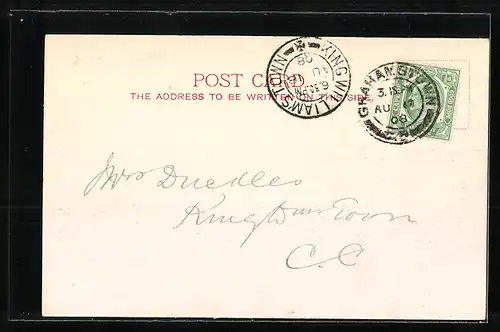 POST CARD.
THE ADDRESS TO BE WRITTEN ON THIS SIDE.
KING WILLIAM'S TOWN
08
GRAHAMSTOWN
AU
08
Mrs Dueddes
King Wms Town
C.C